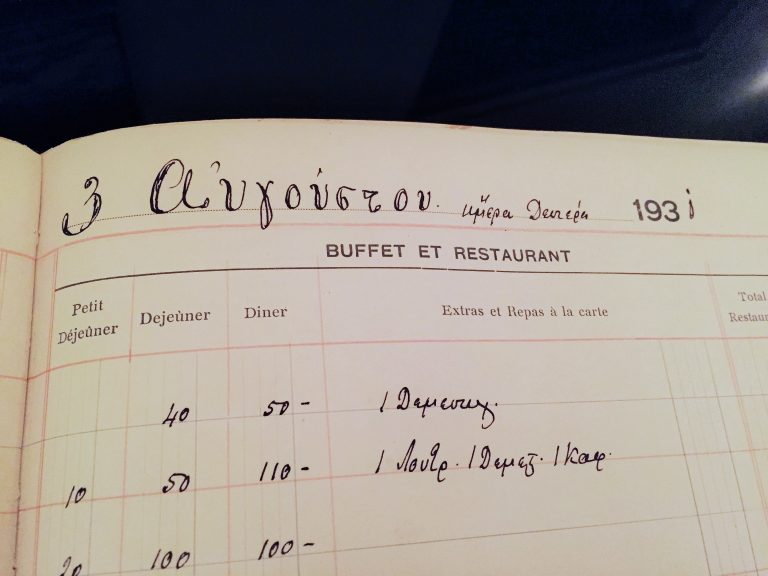 3 Αὐγούστου. ἡμέρα Δευτέρα 1931
BUFFET ET RESTAURANT
Petit Déjeûner Dejeûner Diner Extras et Repas à la carte Total
40 50 - 1 Δεμεστιχ.
10 50 110 - 1 Λουτρ. 1 Δεμεξ. 1 Καφ.
20 100 100 -